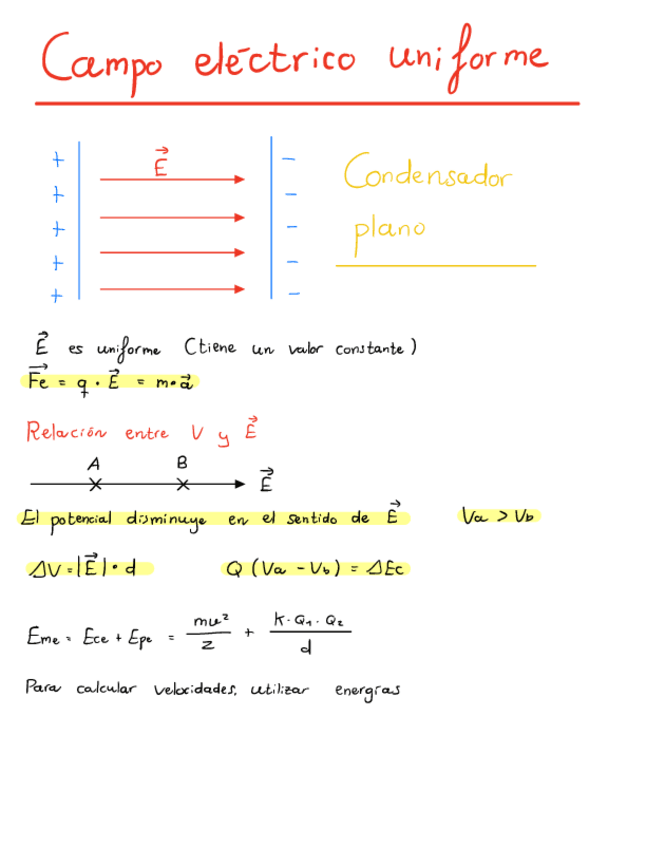 Campo eléctrico uniforme
+ E⃗ −
+ −
+ −
+ −
+ −
Condensador
plano
E⃗ es uniforme (tiene un valor constante)
F⃗e = q · E⃗ = m·a⃗
Relación entre V y E⃗
A B
E⃗
El potencial disminuye en el sentido de E⃗ Va > Vb
ΔV = |E⃗| · d Q (Va − Vb) = ΔEc
Eme = Ece + Epe = mv²/2 + K·Q₁·Q₂/d
Para calcular velocidades, utilizar energías